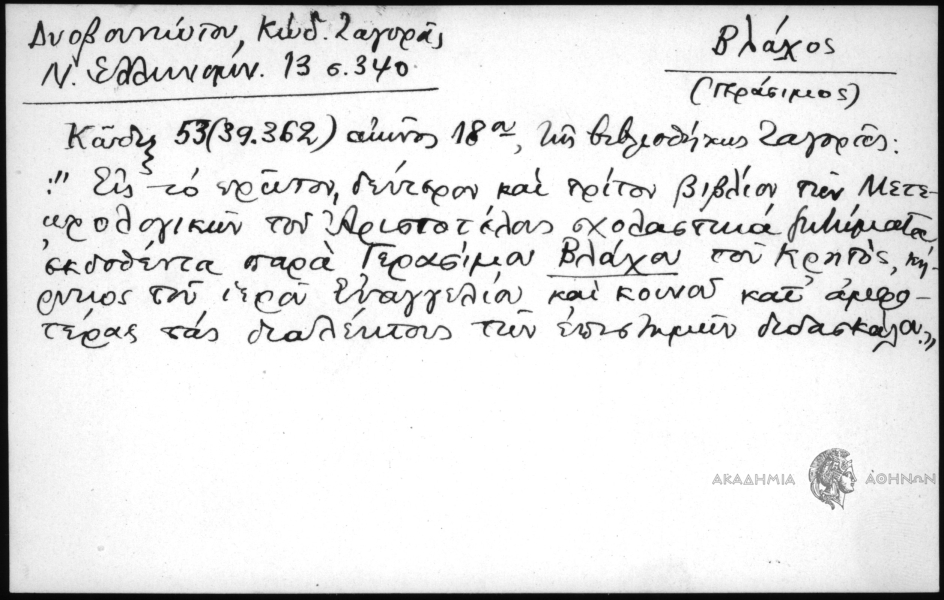 Δυοβουνιώτου, Κώδ. Ζαγορᾶς
Ν. Ἑλληνομν. 13 σ. 340
Βλάχος
(Γεράσιμος)
Κῶδιξ 53 (39.362) αἰῶνος 18ου, τῆς βιβλιοθήκης Ζαγορᾶς:
"Εἰς τὸ πρῶτον, δεύτερον καὶ τρίτον βιβλίον τῶν Μετε-
ωρολογικῶν τοῦ Ἀριστοτέλους σχολαστικὰ ζητήματα
ἐκδοθέντα παρὰ Γερασίμου Βλάχου τοῦ Κρητός, κή-
ρυκος τοῦ ἱεροῦ Εὐαγγελίου καὶ κοινοῦ κατ' ἀμφο-
τέρας τὰς διαλέκτους τῶν ἐπιστημῶν διδασκάλου."
ΑΚΑΔΗΜΙΑ ΑΘΗΝΩΝ